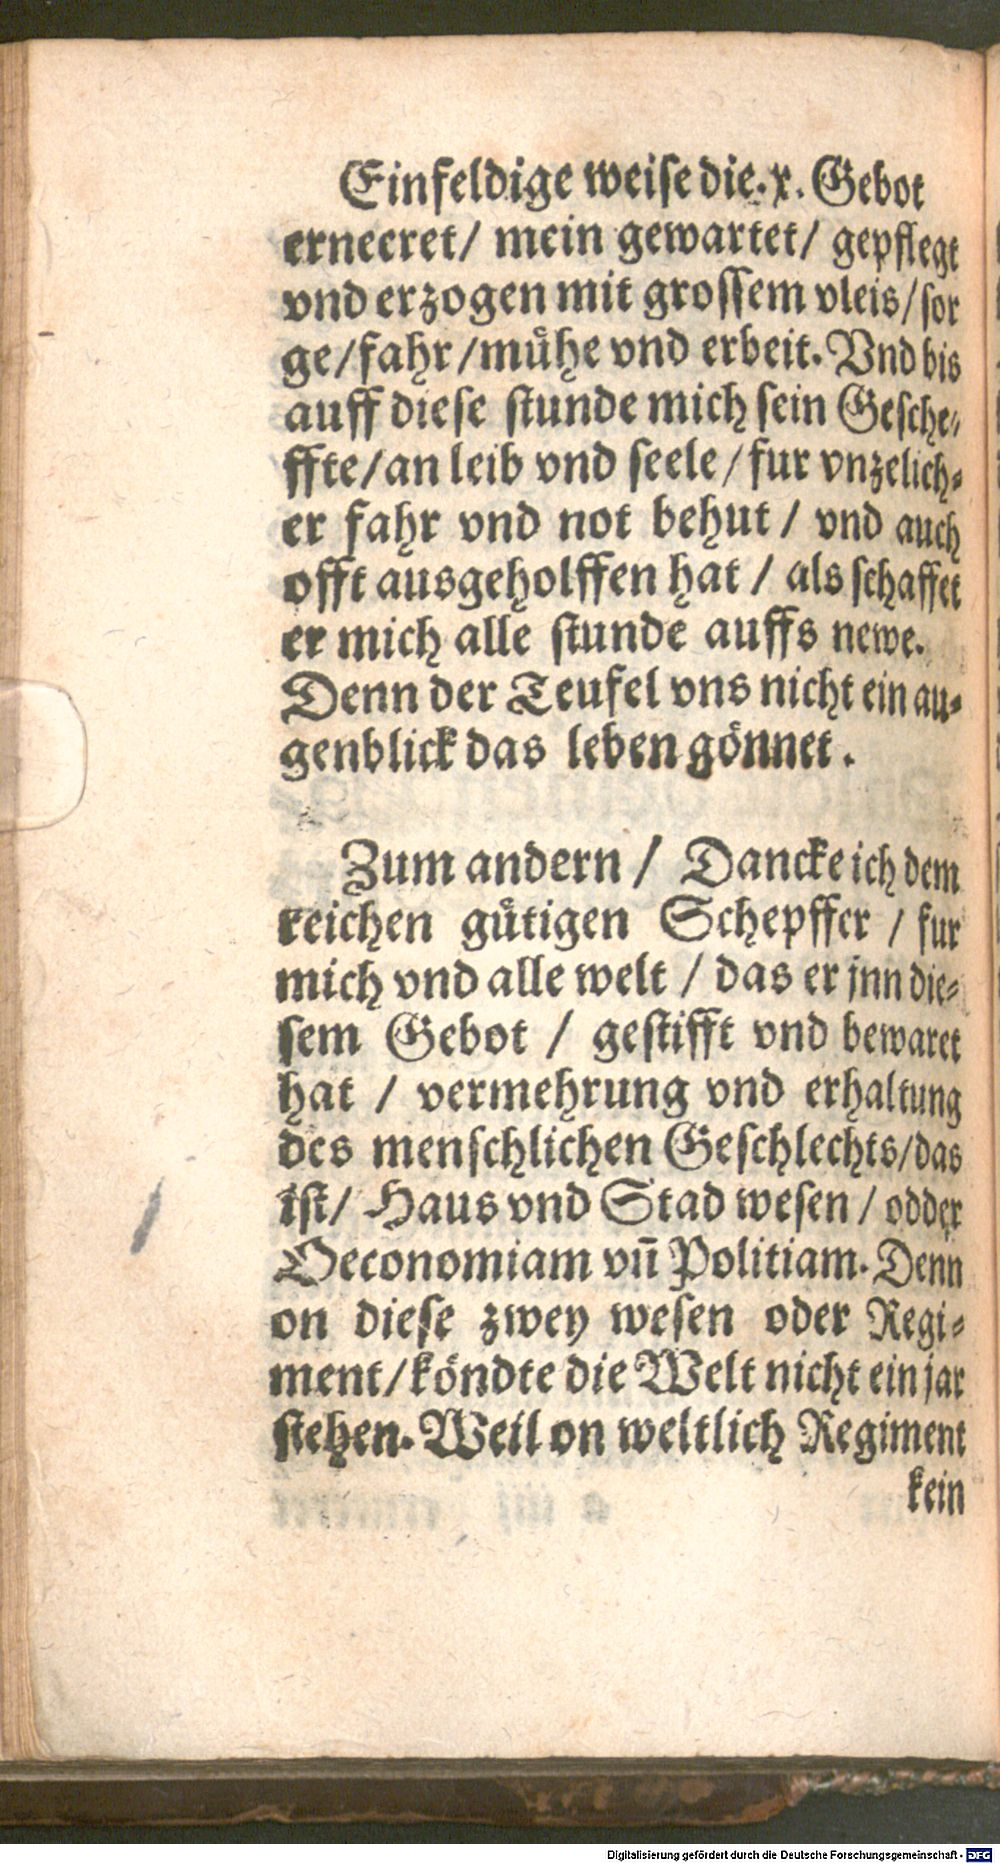 Einfeldige weise die. x. Gebot
erneeret/ mein gewartet/ gepflegt
vnd erzogen mit grossem vleis/ sor
ge/ fahr/ mühe vnd erbeit. Vnd bis
auff diese stunde mich sein Gesche-
ffte/ an leib vnd seele/ fur vnzelich-
er fahr vnd not behut/ vnd auch
offt ausgeholffen hat/ als schaffet
er mich alle stunde auffs newe.
Denn der Teufel vns nicht ein au-
genblick das leben gönnet.
Zum andern/ Dancke ich dem
reichen gütigen Schepffer/ fur
mich vnd alle welt/ das er jnn die-
sem Gebot/ gestifft vnd bewaret
hat/ vermehrung vnd erhaltung
des menschlichen Geschlechts/ das
ist/ Haus vnd Stad wesen/ odder
Oeconomiam vñ Politiam. Denn
on diese zwey wesen oder Regi-
ment/ köndte die Welt nicht ein jar
stehen. Weil on weltlich Regiment
kein
Digitalisierung gefördert durch die Deutsche Forschungsgemeinschaft - DFG